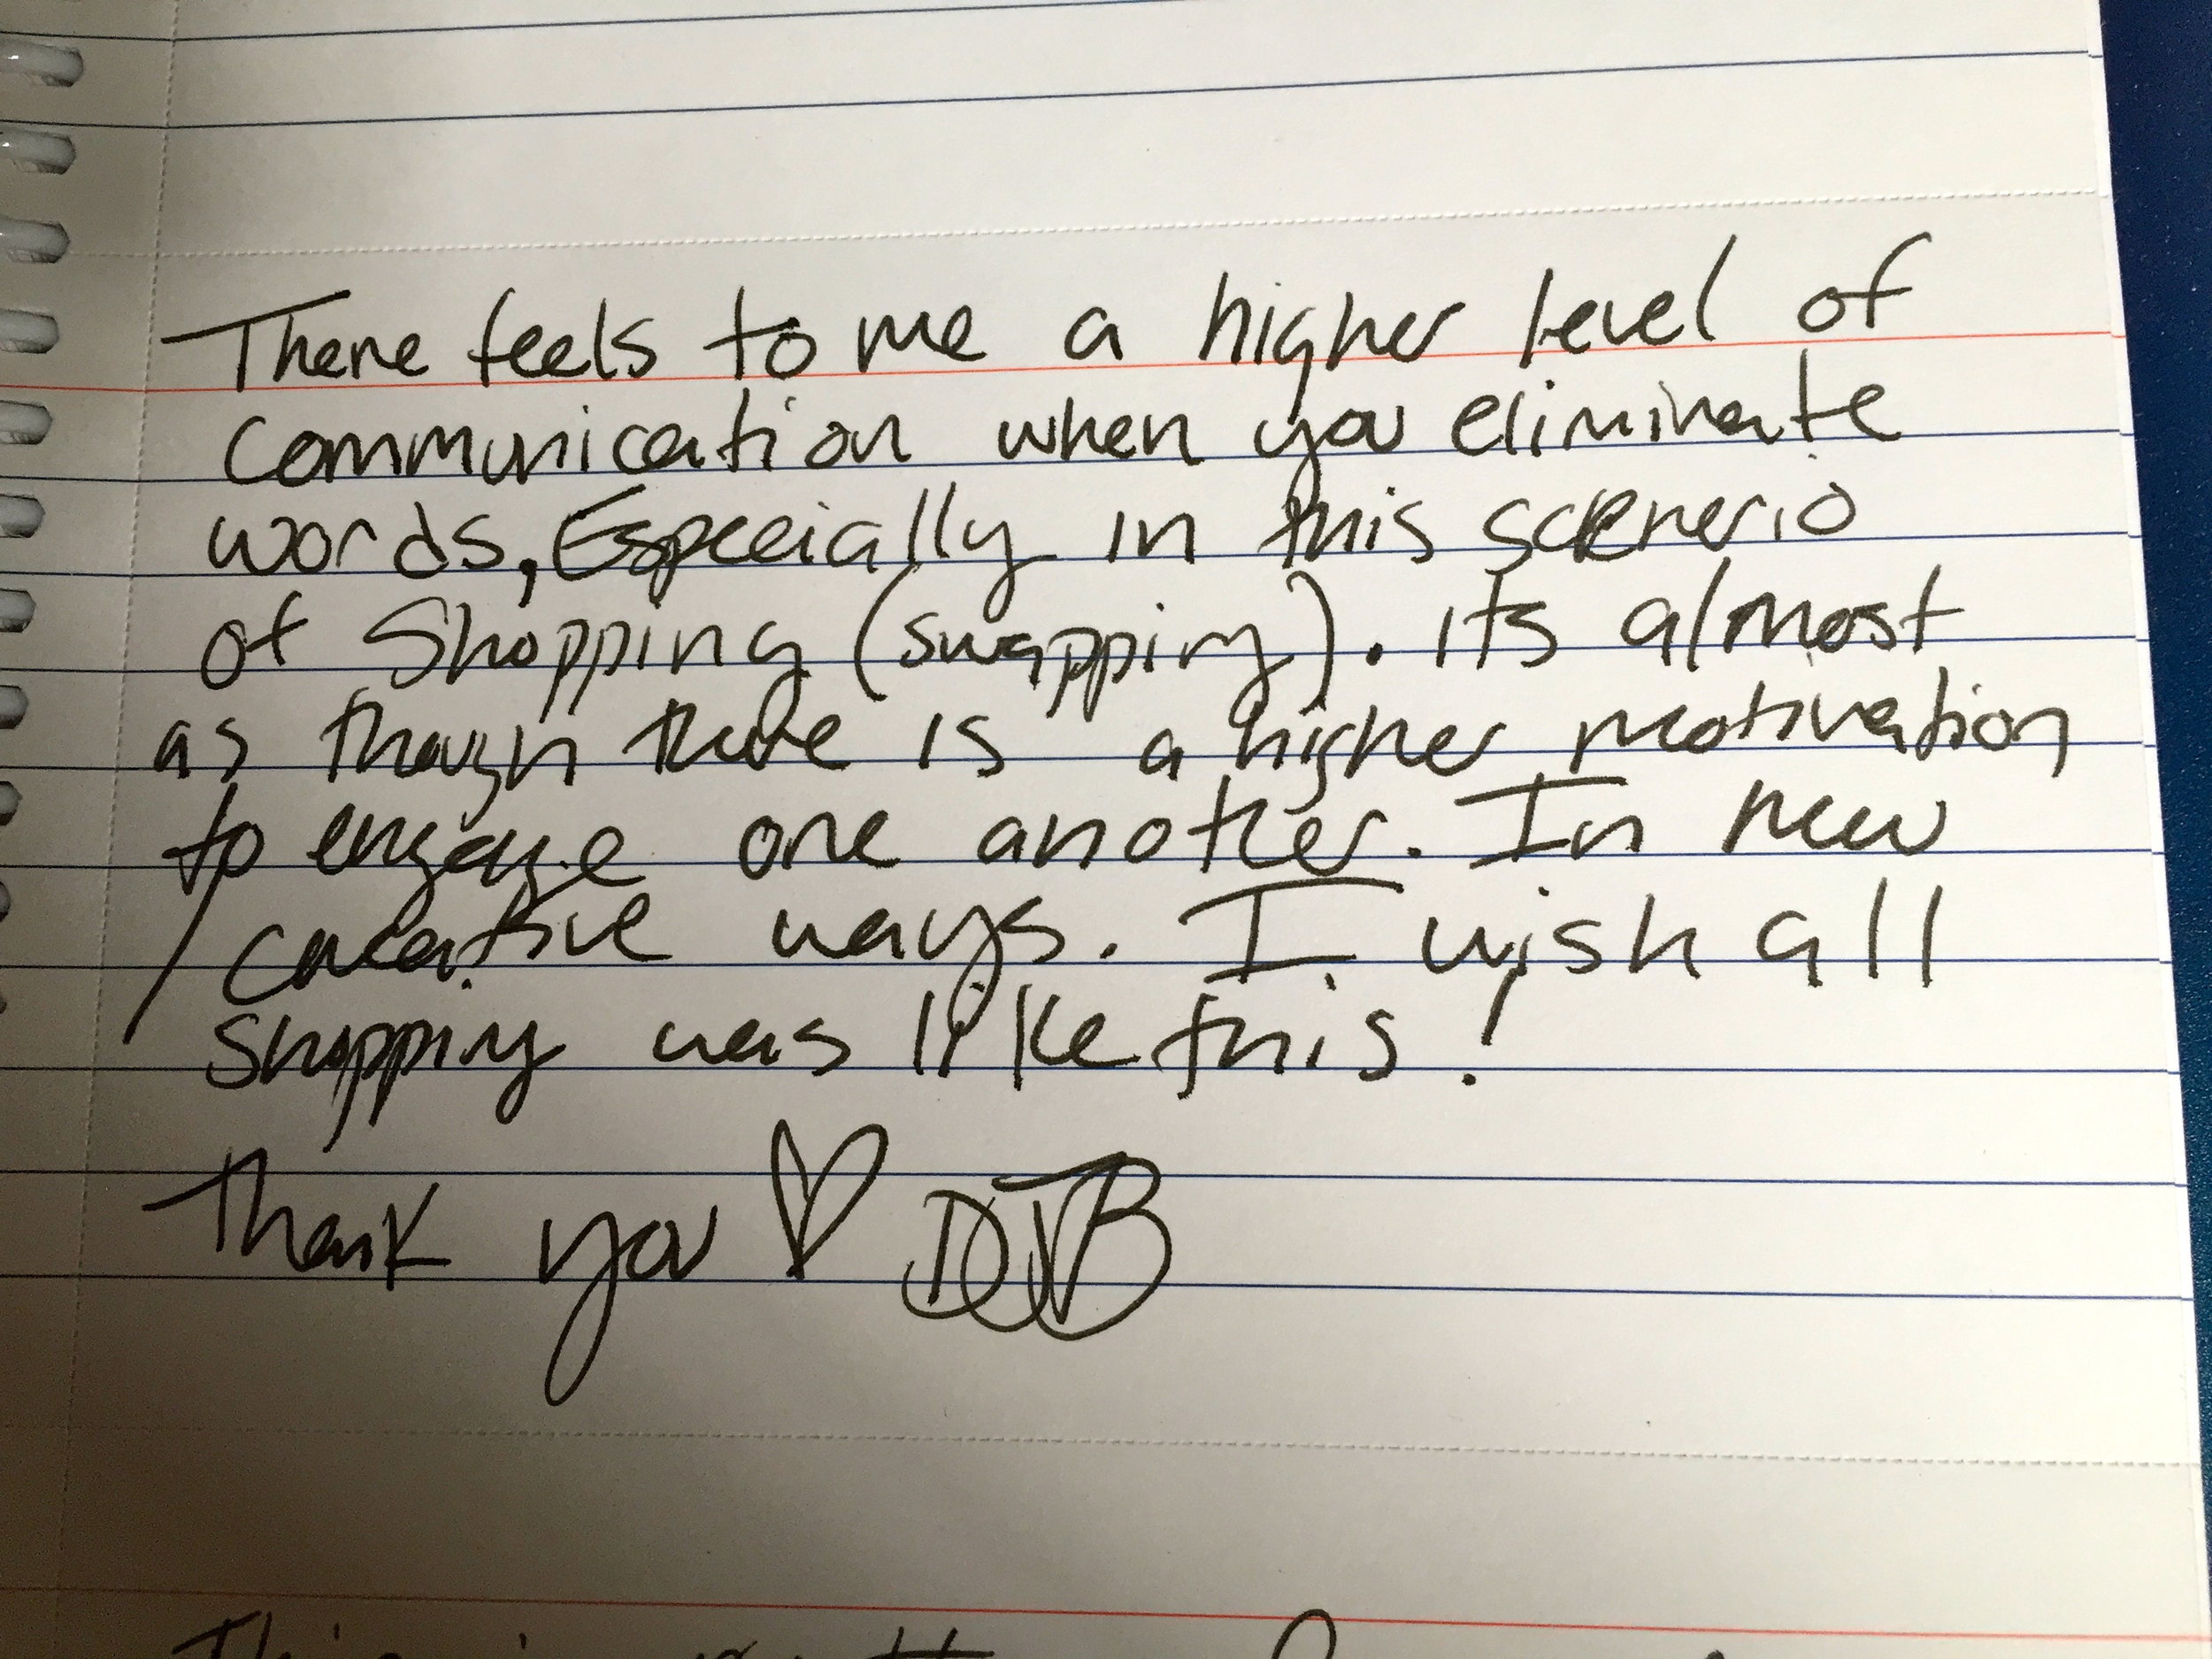 There feels to me a higher level of
communication when you eliminate
words, Especially in this scenerio
of Shopping (swapping). its almost
as though there is a higher motivation
to engage one another. In new
creative ways. I wish all
shopping was like this!
Thank you ♡ DJB